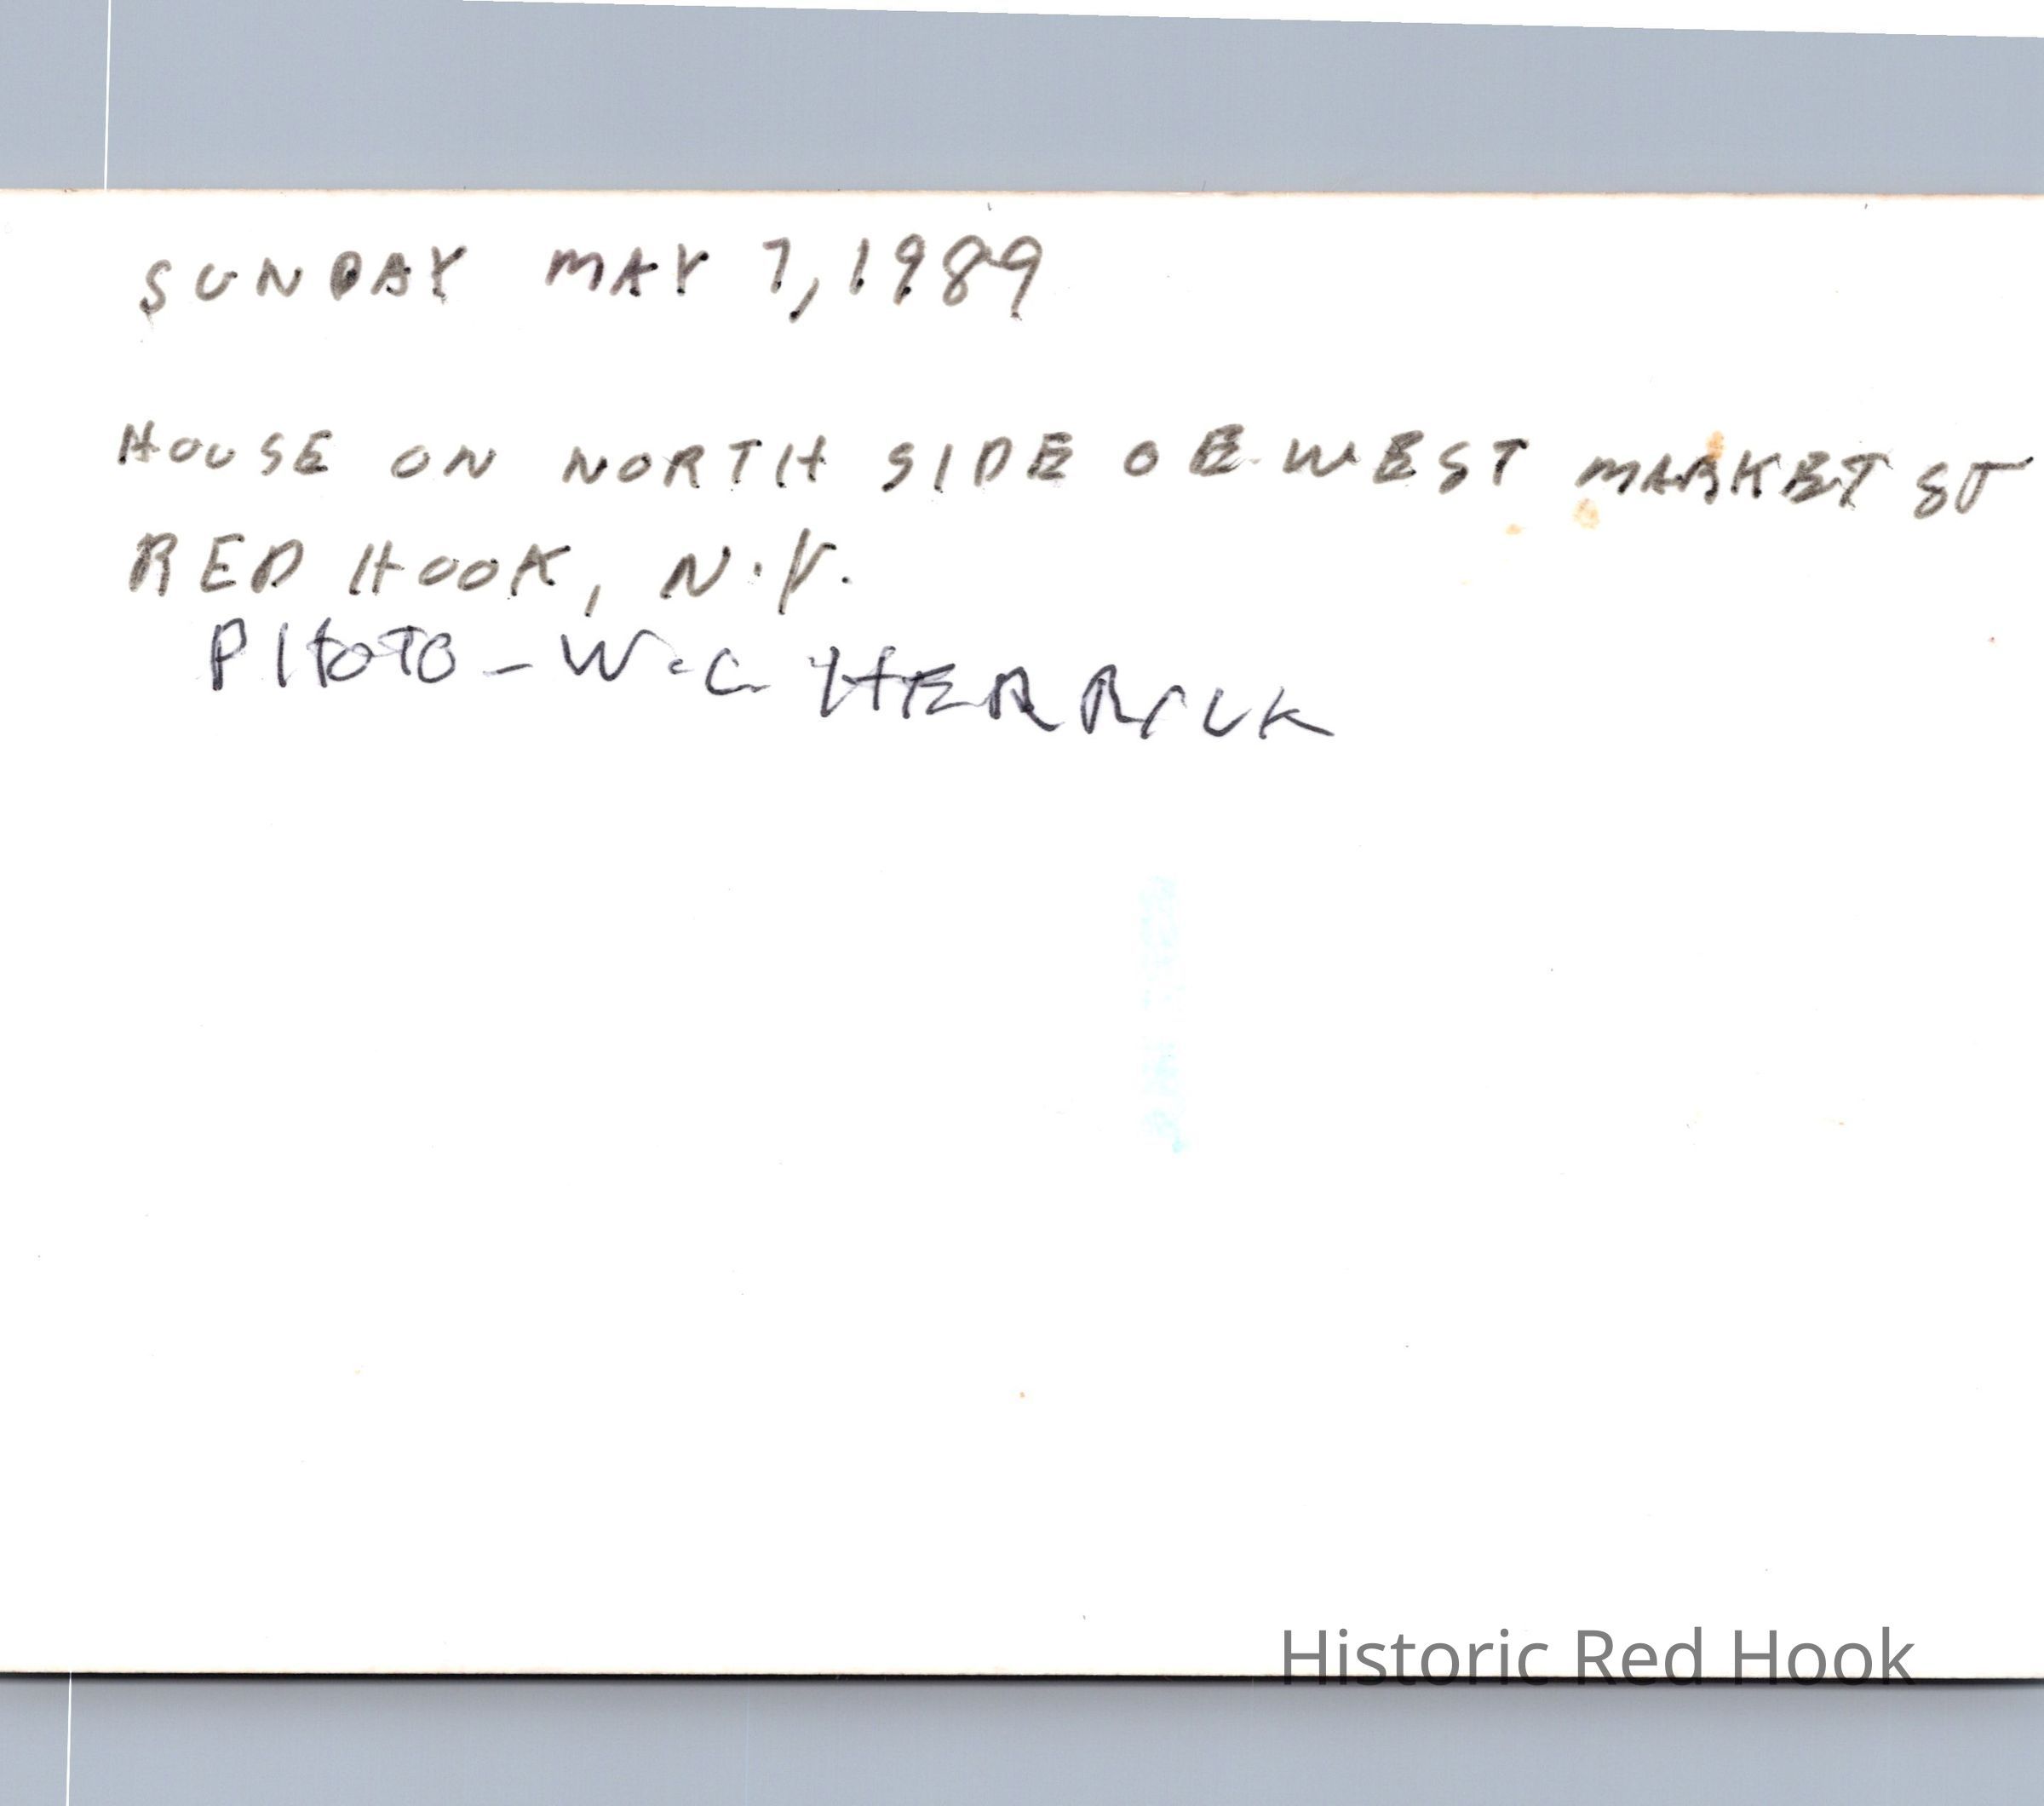 SUNDAY MAY 7, 1989
HOUSE ON NORTH SIDE OF WEST MARKET ST
RED HOOK, N.Y.
PHOTO - W.C. HERRICK
Historic Red Hook